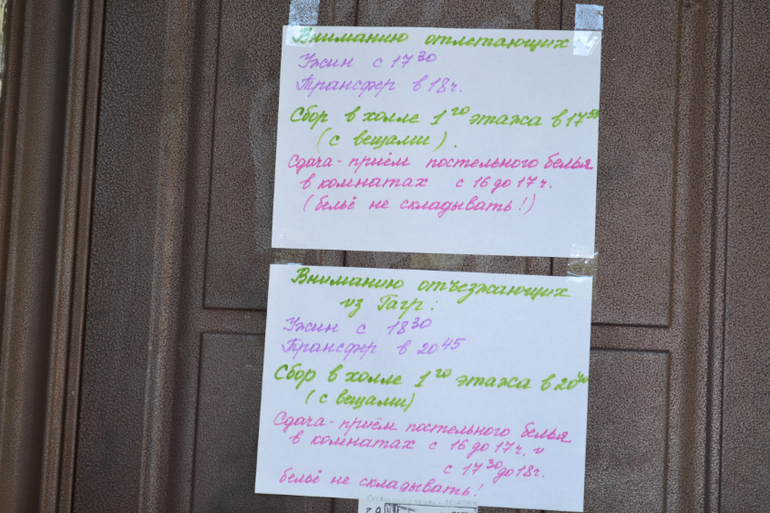 Вниманию отлетающих
Ужин с 17 30
Трансфер в 18 ч.
Сбор в холле 1 го этажа в 17 55
(с вещами).
Сдача-приём постельного белья
в комнатах с 16 до 17 ч.
(бельё не складывать!)
Вниманию отъезжающих
из Гагр:
Ужин с 18 30
Трансфер в 20 45
Сбор в холле 1 го этажа в 20 40
(с вещами)
Сдача-приём постельного белья
в комнатах с 16 до 17 ч. и
с 17 30 до 18 ч.
бельё не складывать!